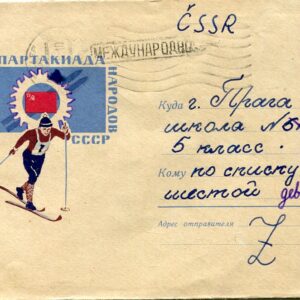 ČSSR
МЕЖДУНАРОДНО
ПАРТАКИАДА
НАРОДОВ
СССР
Куда г. Прага
школа №
5 класс.
Кому по списку
шестой дев
Адрес отправителя